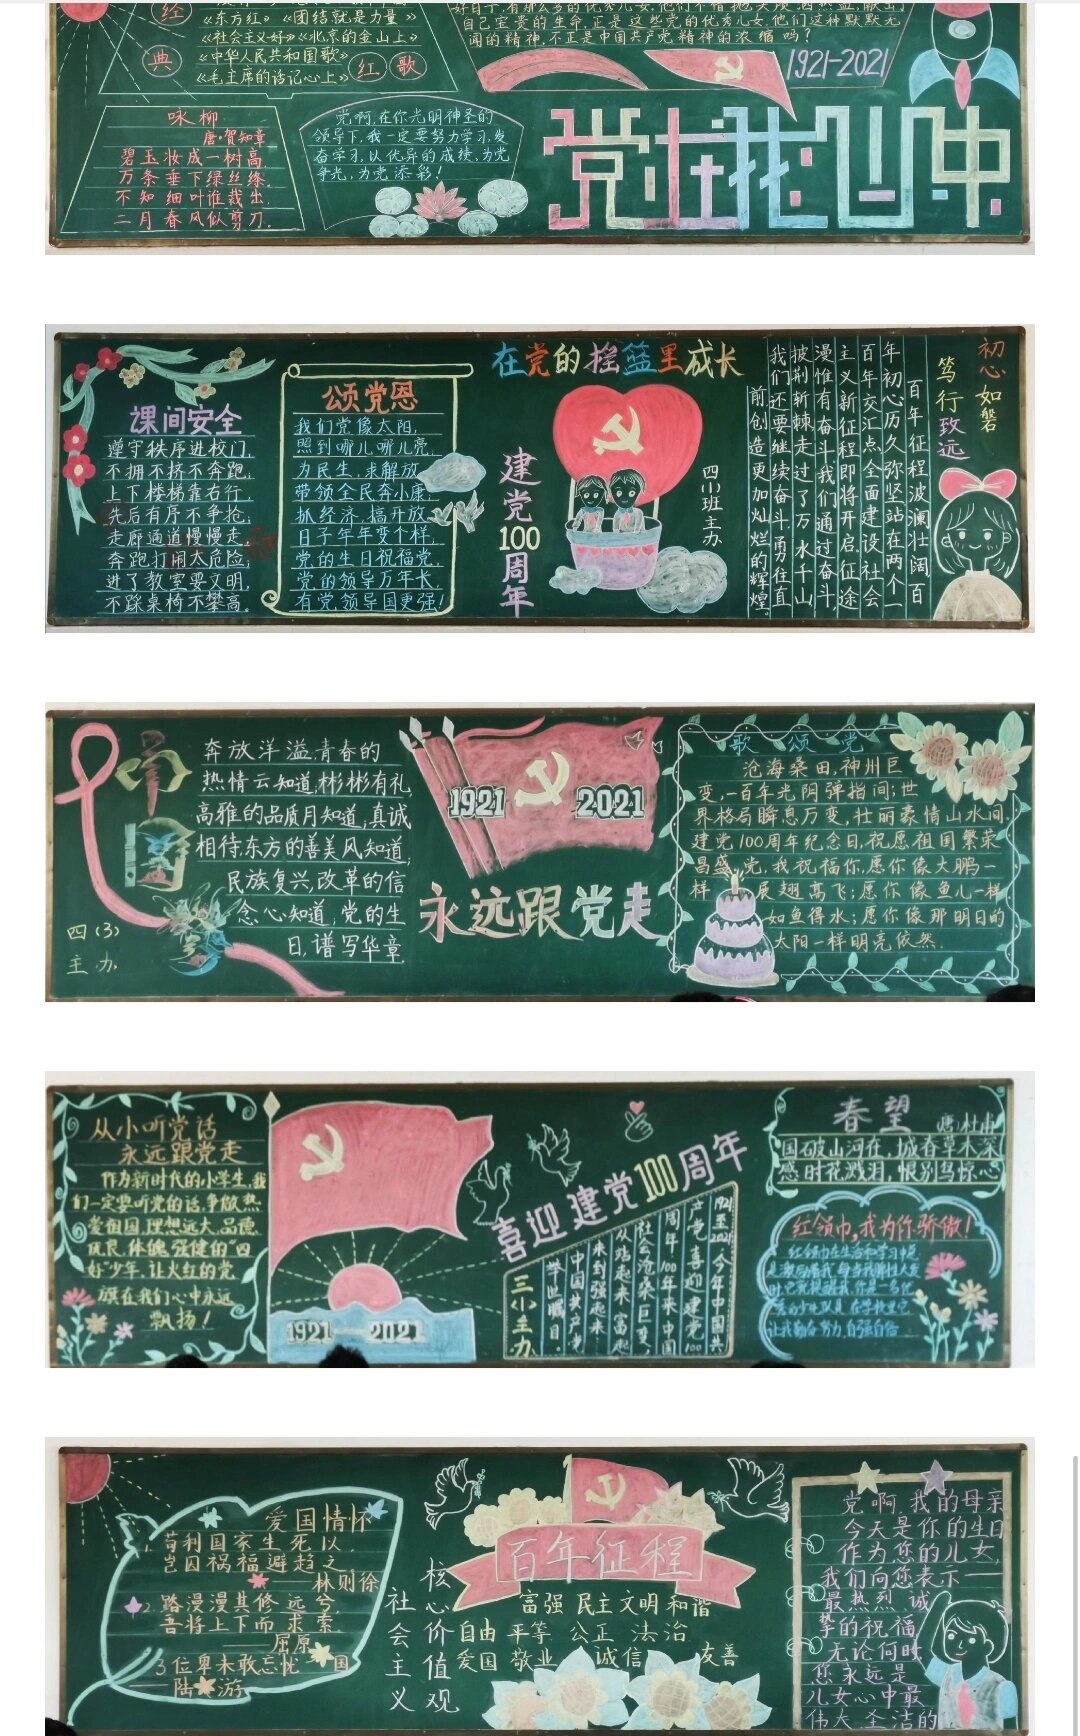 《东方红》《团结就是力量》
《社会主义好》《北京的金山上》
《中华人民共和国歌》
《毛主席的话记心上》
经
典
红
歌
自己宝贵的生命,正是这些党的优秀儿女,他们这种默默无
闻的精神,不正是中国共产党精神的浓缩吗?
1921-2021
咏柳
唐·贺知章
碧玉妆成一树高,
万条垂下绿丝绦.
不知细叶谁裁出,
二月春风似剪刀.
党啊,在你光明神圣的
领导下,我一定要努力学习,发
奋学习,以优异的成绩,为党
争光,为党添彩!
党在我心中
课间安全
遵守秩序进校门,
不拥不挤不奔跑,
上下楼梯靠右行,
先后有序不争抢;
走廊通道慢慢走,
奔跑打闹太危险;
进了教室要文明,
不踩桌椅不攀高.
颂党恩
我们党像太阳,
照到哪儿哪儿亮,
为民生,求解放
带领全民奔小康;
抓经济,搞开放
日子年年变个样,
党的生日祝福党,
党的领导万年长,
有党领导国更强!
在党的摇篮里成长
建党100周年
四(1)班主办
初心如磐
笃行致远
百年征程波澜壮阔,百
年初心历久弥坚站在两个一
百年交汇点全面建设社会
主义新征程即将开启.征途
漫惟有奋斗我们通过奋斗,
披荆斩棘走过了万水千山,
我们还要继续奋斗,勇往直
前创造更加灿烂的辉煌。
奔放洋溢,青春的
热情云知道,彬彬有礼
高雅的品质月知道,真诚
相待,东方的善美风知道;
民族复兴,改革的信
念,心知道,党的生
日,谱写华章
四(3)
主办
1921 2021
永远跟党走
歌颂党
沧海桑田,神州巨
变,一百年光阴弹指间;世
界格局瞬息万变,壮丽豪情山水间.
建党100周年纪念日,祝愿祖国繁荣
昌盛党,我祝福你,愿你像大鹏一
样展翅高飞;愿你像鱼儿一样
如鱼得水;愿你像那明日的
太阳一样明亮依然.
从小听党话
永远跟党走
作为新时代的小学生,我
们一定要听党的话,争做热
爱祖国,理想远大,品德
优良,体魄强健的"四
好"少年,让火红的党
旗在我们心中永远
飘扬!
1921 2021
喜迎建党100周年
1921至2021今年中国共
产党喜迎建党100
周年,100年来,中国
社会沧桑巨变,
从站起来富起
来到强起来
中国共产党
举世瞩目。
三(1)主办
春望
唐杜甫
国破山河在,城春草木深
感时花溅泪,恨别鸟惊心
红领巾,我为你骄傲!
让我勤奋努力,自强自信
爱国情怀
苟利国家生死以,
岂因祸福避趋之
——林则徐
2.路漫漫其修远兮,
吾将上下而求索.
——屈原
3位卑未敢忘忧国
——陆游
社会主义
核心价值观
百年征程
富强 民主 文明 和谐
自由 平等 公正 法治
爱国 敬业 诚信 友善
党啊,我的母亲
今天是你的生日
作为您的儿女,
我们向您表示——
最热烈,诚
挚的祝福
无论何时
您永远是
儿女心中最
伟大圣洁的